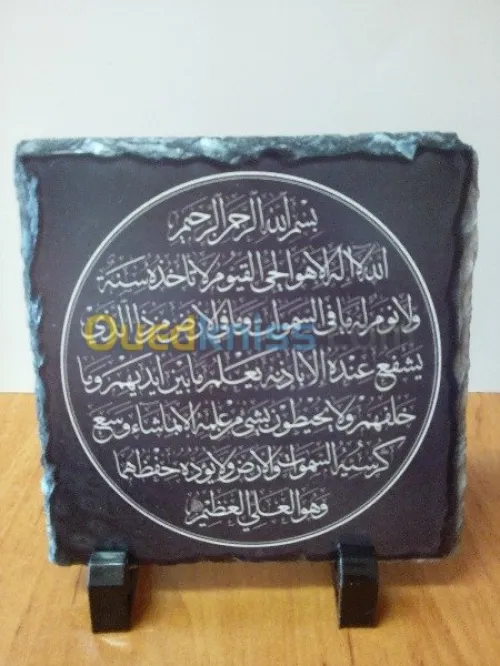 بسم الله الرحمن الرحيم
الله لا اله الا هو الحي القيوم لا تاخذه سنة
ولا نوم له ما في السموات وما في الارض من ذا الذي
يشفع عنده الا باذنه يعلم ما بين ايديهم وما
خلفهم ولا يحيطون بشيء من علمه الا بما شاء وسع
كرسيه السموات والارض ولا يؤده حفظهما
وهو العلي العظيم
Ouedkniss.com